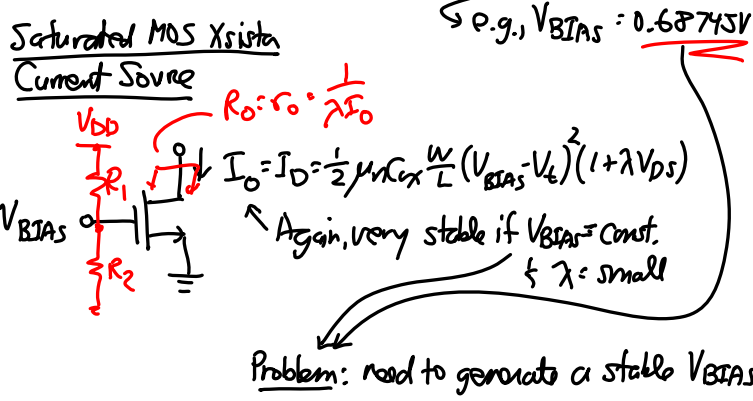 ↳ e.g., V_BIAS = 0.68745V
Saturated MOS Xsistor
Current Source
V_DD
R_o = r_o = 1/(λI_o)
R_1
I_o = I_D = 1/2 μ_n C_ox W/L (V_BIAS - V_t)^2 (1 + λV_DS)
V_BIAS
Again, very stable if V_BIAS = const.
& λ = small
R_2
Problem: need to generate a stable V_BIAS